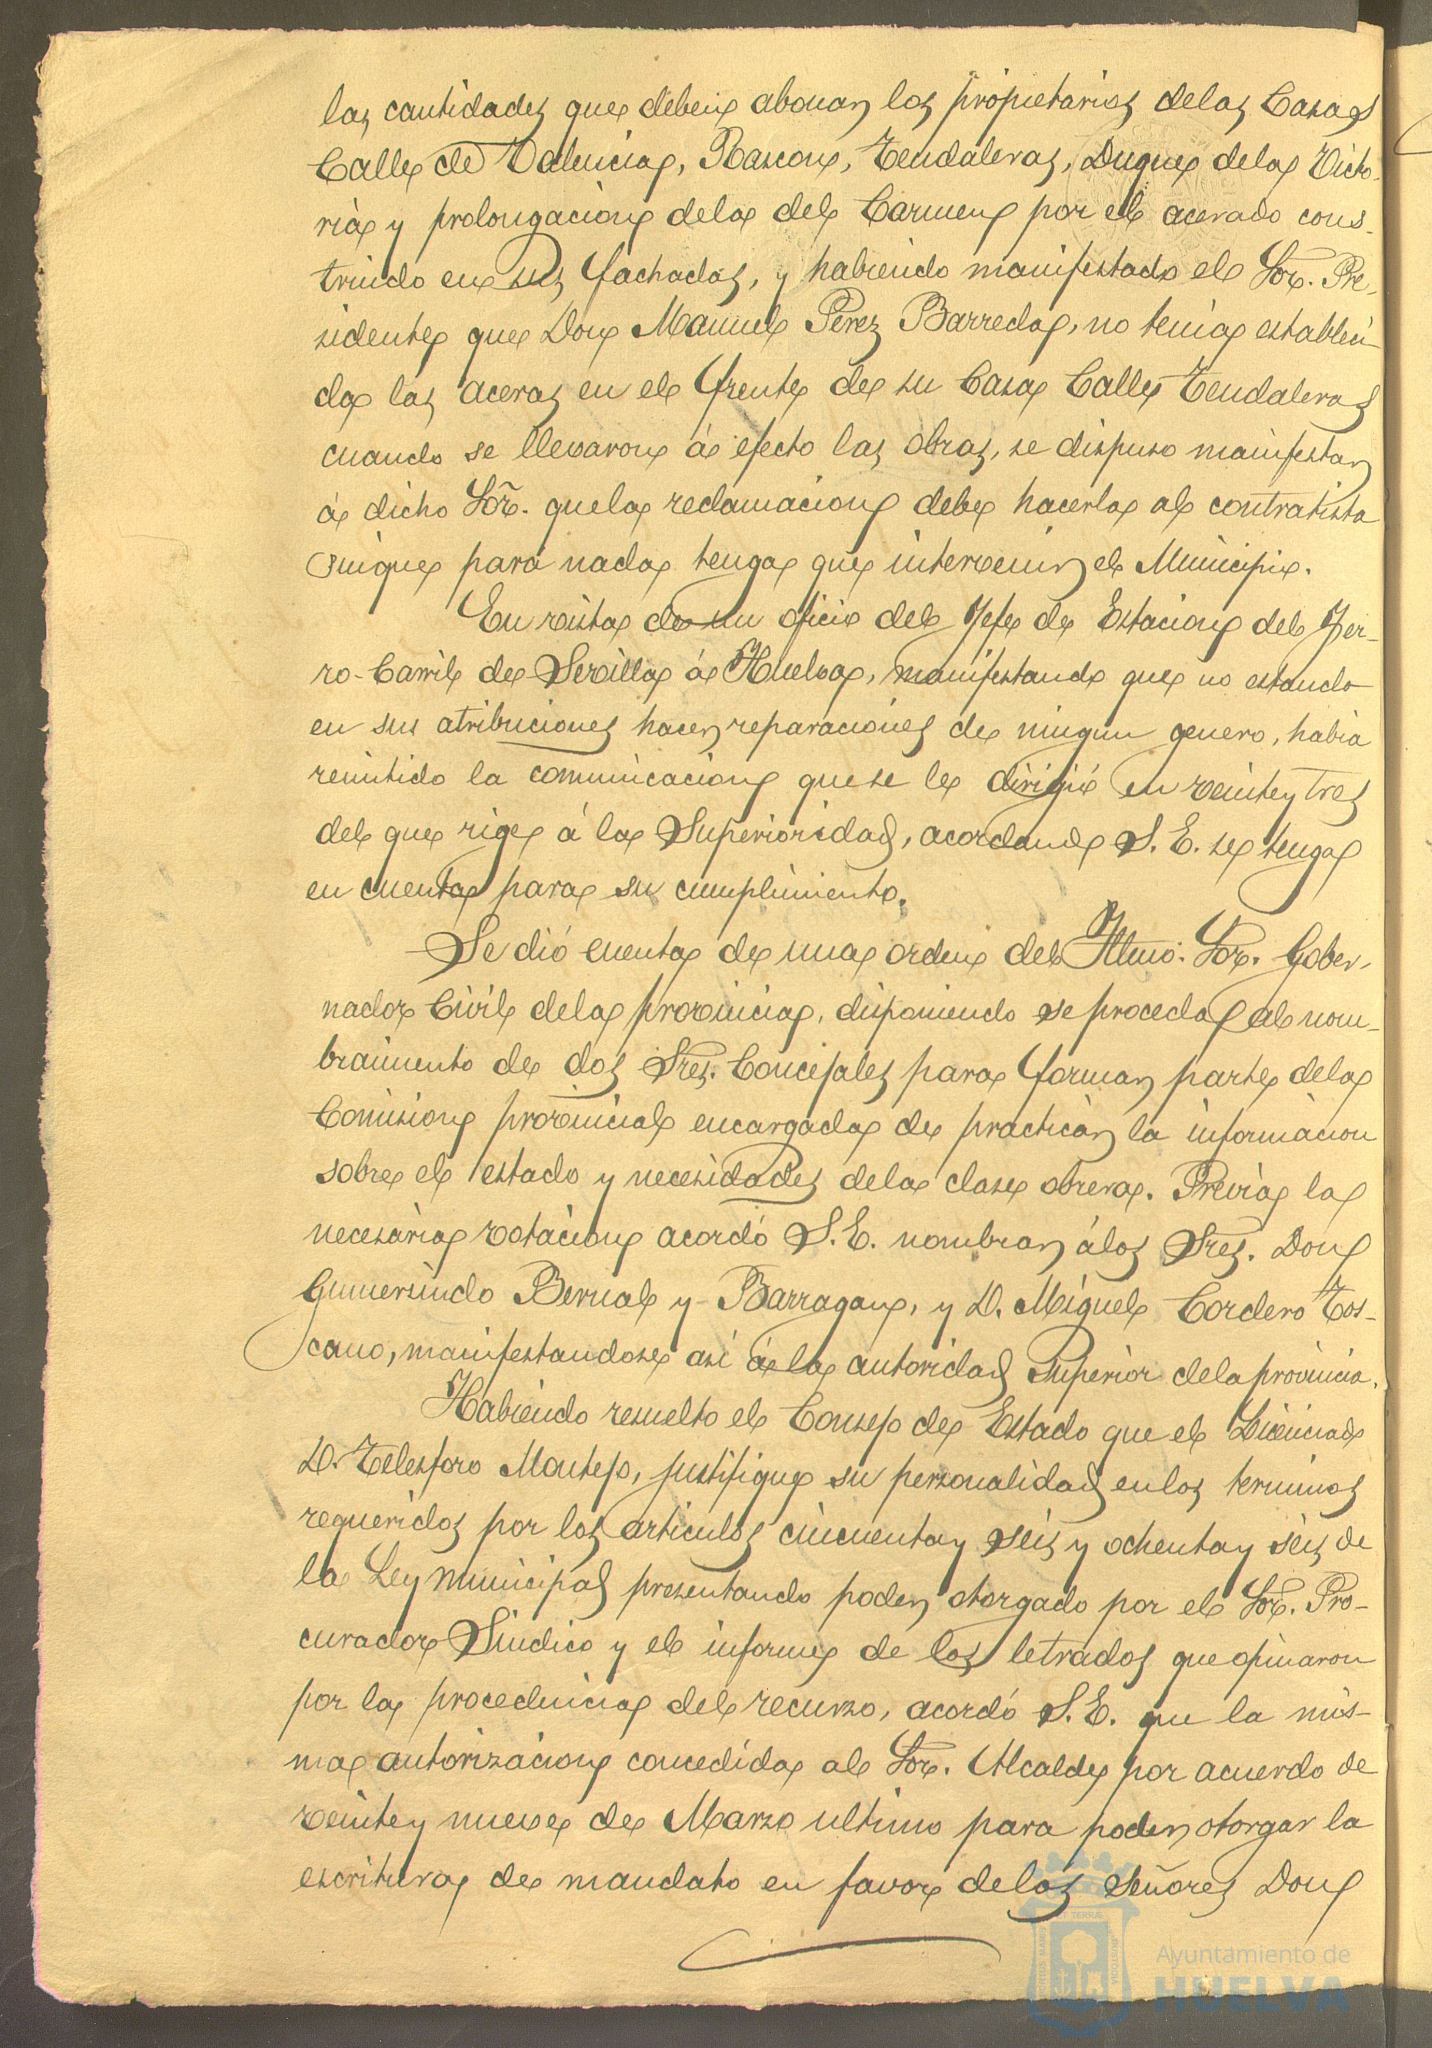 las cantidades que deben abonar los propietarios delas Casas
Calle de Valencia, Rascon, Tendaleras, Duque dela Victo-
ria y prolongacion dela del Carmen por el acerado cons-
truido en sus fachadas, y habiendo manifestado el Sor. Pre-
sidente que Don Manuel Perez Barreda, no tenia estableci-
da las aceras en el frente de su Casa Calle Tendaleras
cuando se llevaron á efecto las obras, se dispuso manifestar
á dicho Sor. quela reclamacion debe hacerla al contratista
sin que para nada tenga que intervenir el Municipio.
En vista de un oficio del Jefe de Estacion del Fer-
ro-Carril de Sevilla á Huelva, manifestando que no estando
en sus atribuciones hacer reparaciones de ningun genero, habia
remitido la comunicacion que se le dirigió en veinte y tres
del que rige á la Superioridad, acordando S. E. se tenga
en cuenta para su cumplimiento.
Se dió cuenta de una orden del Iltmo. Sor. Gober-
nador Civil dela provincia, disponiendo se proceda al nom-
bramiento de dos Sres. Concejales para formar parte dela
Comision provincial encargada de practicar la informacion
sobre el estado y necesidades dela clase obrera. Previa la
necesaria votacion acordó S. E. nombrar álos Sres. Don
Gumersindo Bernal y Barragan, y D. Miguel Cordero Tos-
cano, manifestandose asi á la autoridad Superior dela provincia.
Habiendo resuelto el Consejo de Estado que el Licenciado
D. Telesforo Montejo, justifique su personalidad enlos terminos
requeridos por los articulos cincuenta y seis y ochenta y seis de
la Ley municipal presentando poder otorgado por el Sor. Pro-
curador Sindico y el informe de los letrados que opinaron
por la procedencia del recurso, acordó S. E. que la mis-
ma autorizacion concedida al Sor. Alcalde por acuerdo de
veinte y nueve de Marzo ultimo para poder otorgar la
escritura de mandato en favor delos Señores Don
Ayuntamiento de
HUELVA